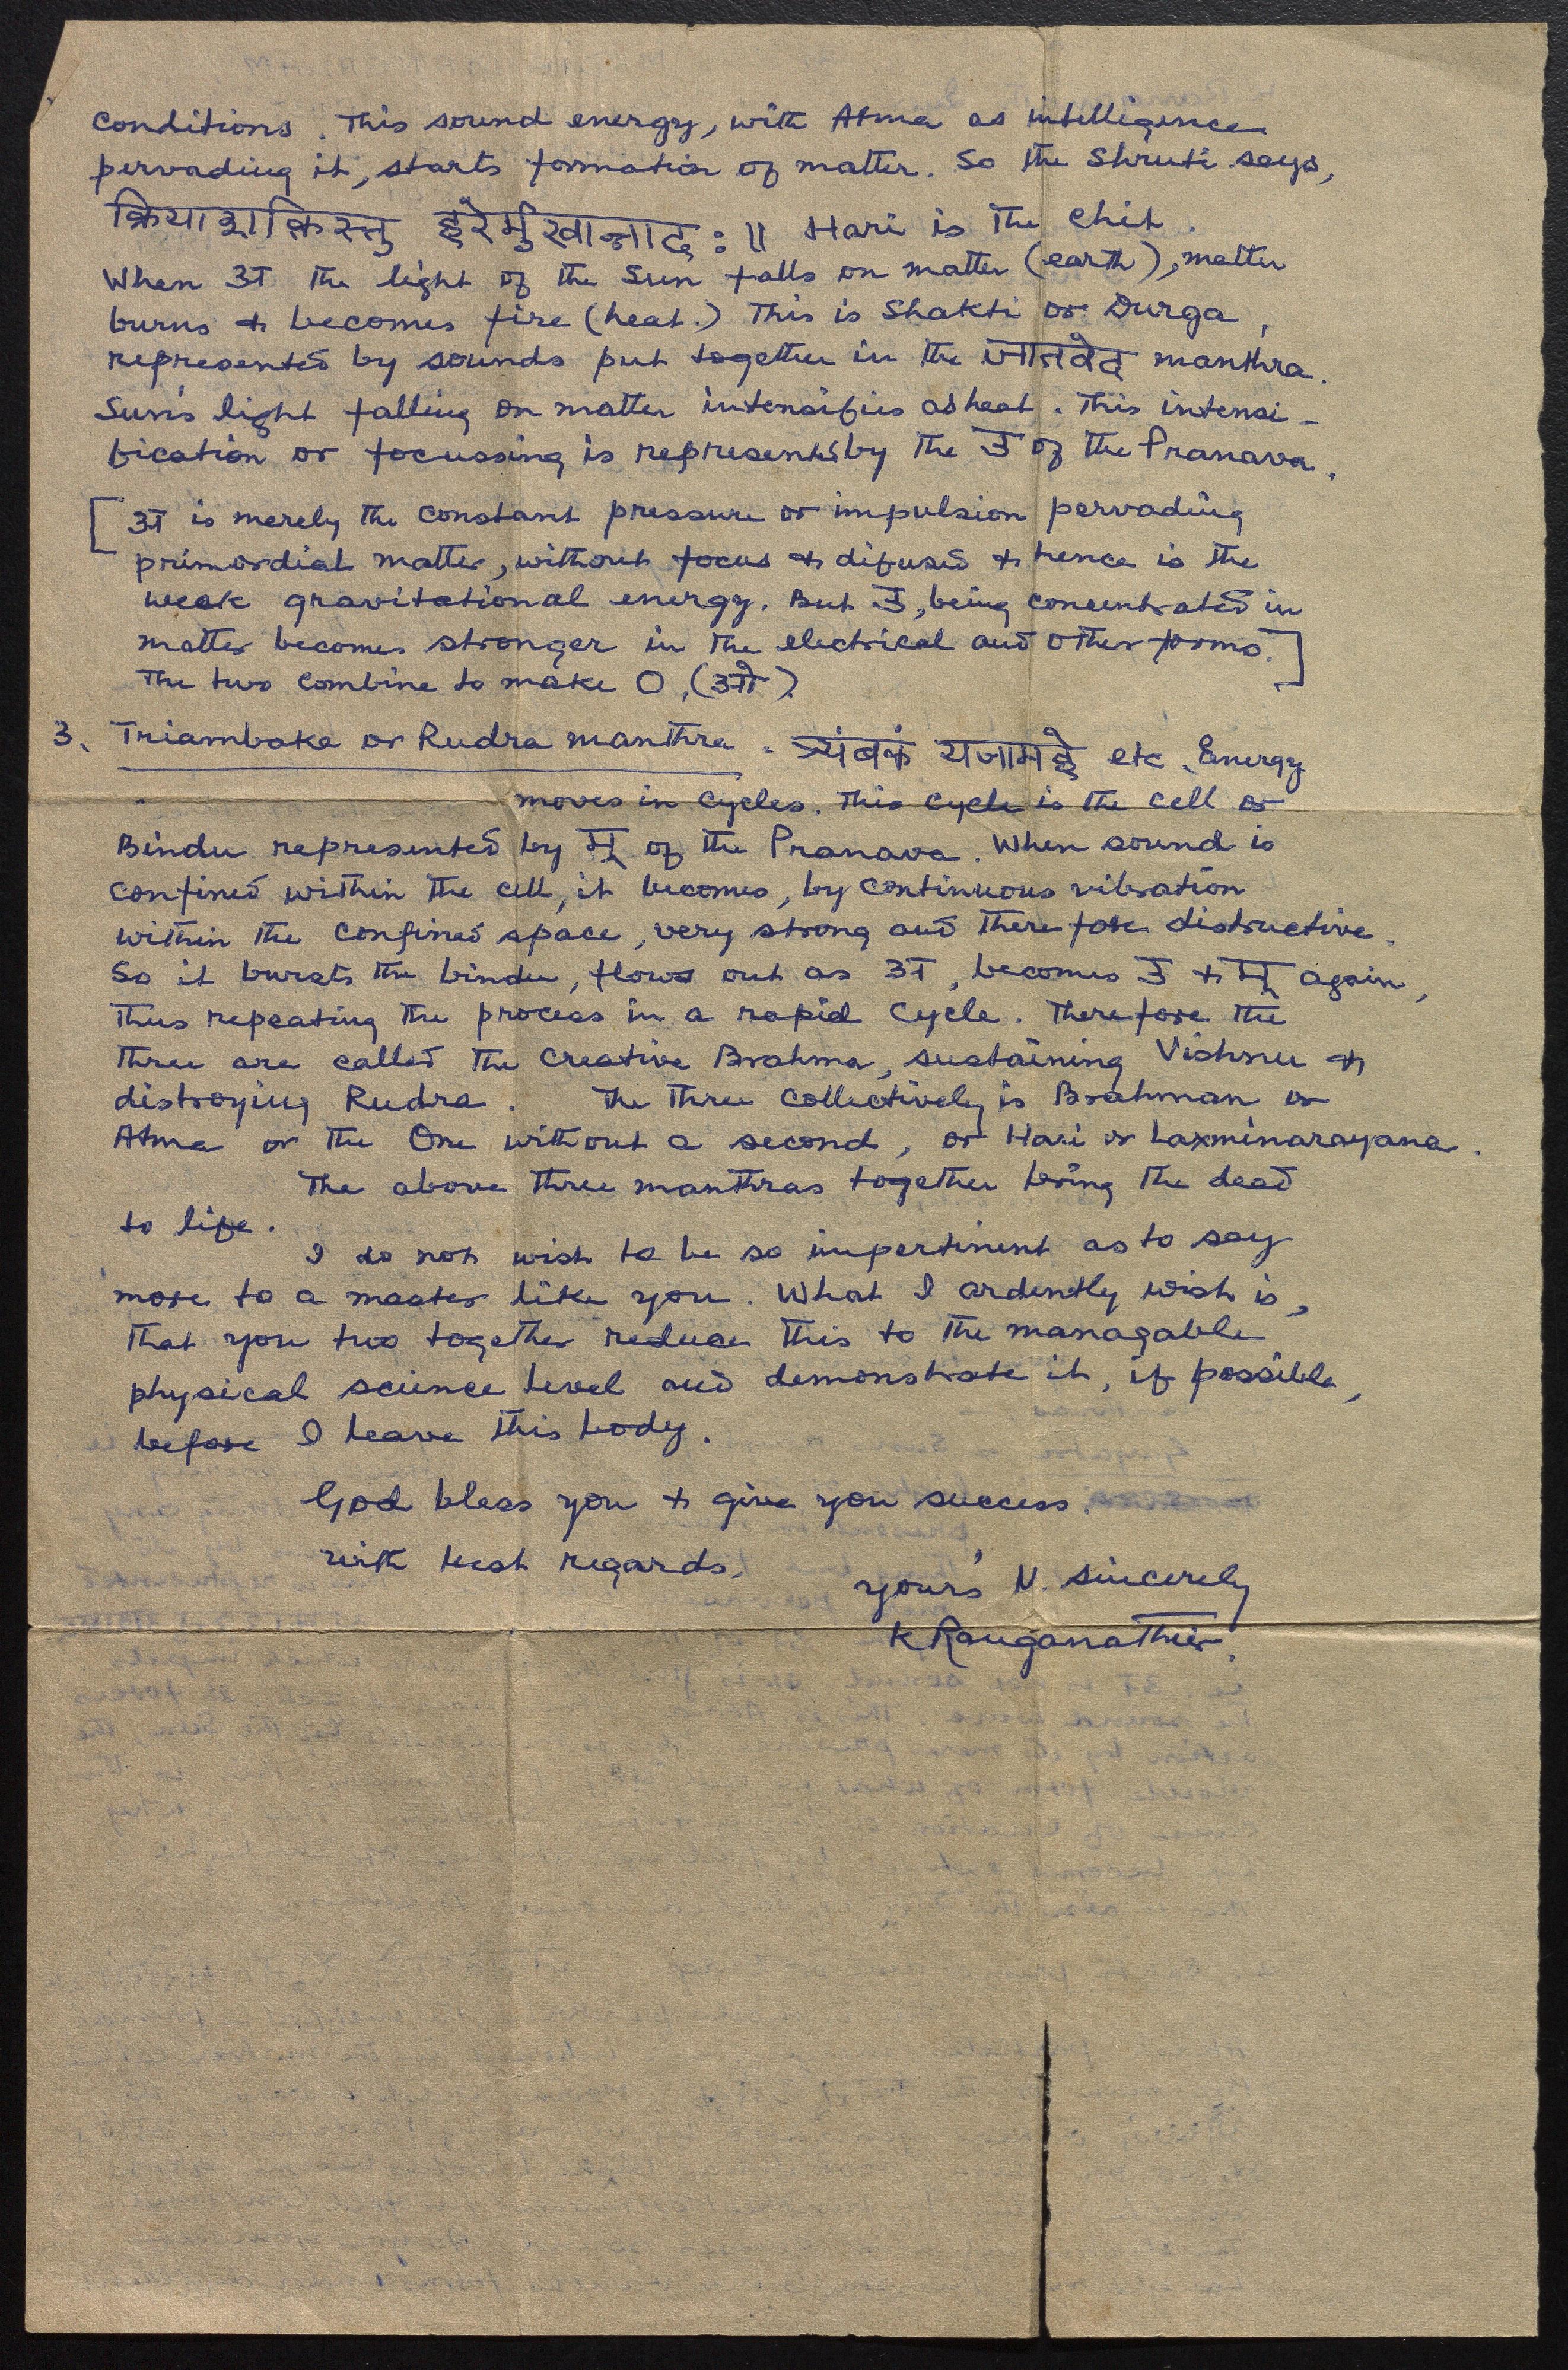 conditions. This sound energy, with Atma as intelligence
pervading it, starts formation of matter. So the Shruti says,
क्रियाशक्तिस्तु हरेर्मुखान्नादः॥ Hari is the chit.
When अ the light of the Sun falls on matter (earth), matter
burns & becomes fire (heat.) This is Shakti or Durga,
represented by sounds put together in the जातवेद manthra.
Sun's light falling on matter intensifies as heat. This intensi-
fication or focussing is represented by the उ of the Pranava.
[अ is merely the constant pressure or impulsion pervading
primordial matter, without focus & difused & hence is the
weak gravitational energy. But उ, being concentrated in
matter becomes stronger in the electrical and other forms.]
The two combine to make O, (ओ).
3. Triambaka or Rudra manthra. त्र्यंबकं यजामहे etc. Energy
moves in cycles. This cycle is the cell or
Bindu represented by म् of the Pranava. When sound is
confined within the cell, it becomes, by continuous vibration
within the confined space, very strong and therefore distructive.
So it bursts the bindu, flows out as अ, becomes उ & म् again,
thus repeating the process in a rapid cycle. Therefore the
three are called the creative Brahma, sustaining Vishnu &
distroying Rudra. The three collectively is Brahman or
Atma or the One without a second, or Hari or Laxminarayana.
The above three manthras together bring the dead
to life.
I do not wish to be so impertinent as to say
more to a master like you. What I ardently wish is,
that you two together reduce this to the managable
physical science level and demonstrate it, if possible,
before I leave this body.
God bless you & give you success.
with best regards.
your's V. sincerely
K Ranganathier.